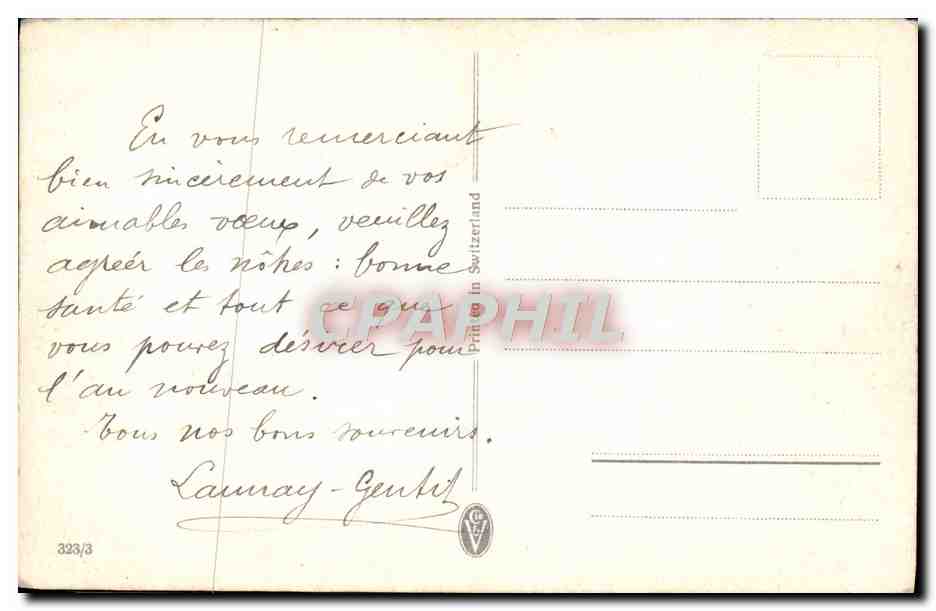 En vous remerciant
bien sincèrement de vos
aimables vœux, veuillez
agréér les nôtres : bonne
santé et tout ce que
vous pouvez désirer pour
l'an nouveau.
Tous nos bons souvenirs.
Launay-Gentil
323/3
Printed in Switzerland
CPAPHIL